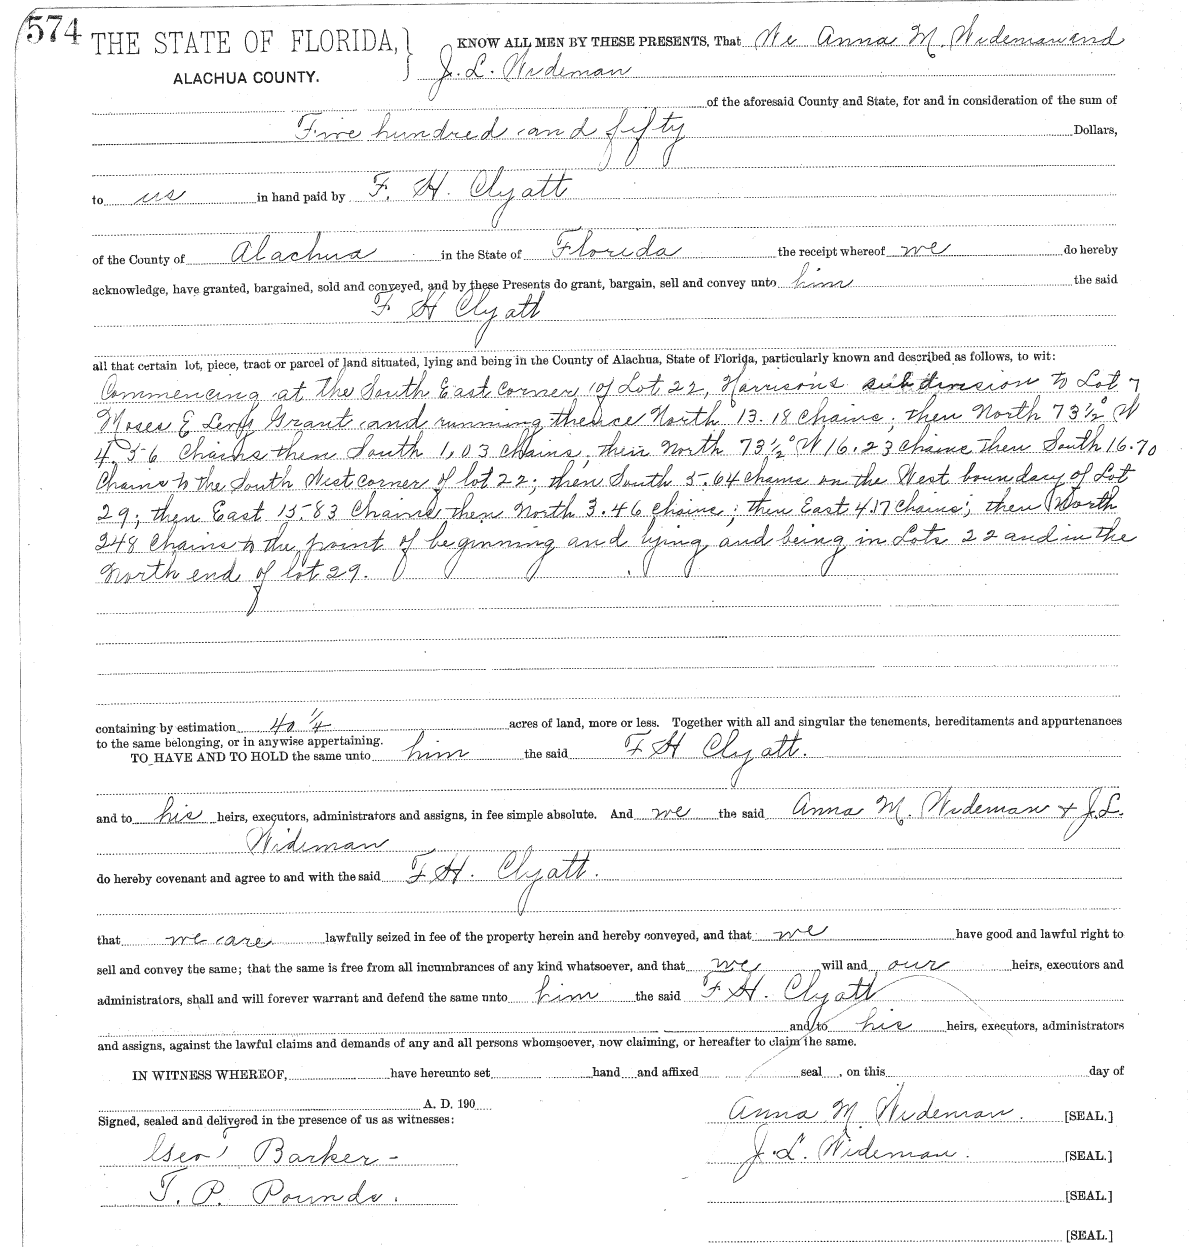 574
THE STATE OF FLORIDA,
ALACHUA COUNTY.
KNOW ALL MEN BY THESE PRESENTS, That We Anna M. Wideman and
J. L. Wideman
of the aforesaid County and State, for and in consideration of the sum of
Five hundred and fifty Dollars,
to us in hand paid by F. H. Clyatt
of the County of Alachua in the State of Florida the receipt whereof we do hereby
acknowledge, have granted, bargained, sold and conveyed, and by these Presents do grant, bargain, sell and convey unto him the said
F H Clyatt
all that certain lot, piece, tract or parcel of land situated, lying and being in the County of Alachua, State of Florida, particularly known and described as follows, to wit:
Commencing at the South East corner of Lot 22, Harrison's sub division to Lot 7
Moses E Levy Grant and running thence North 13.18 Chains; then North 73½° W
4.56 Chains then South 1.03 Chains, then North 73½° W 16.23 chains then South 16.70
Chains to the South West corner of lot 22; then South 5.64 chains on the West boundary of Lot
29; then East 15.83 Chains then North 3.46 Chains; then East 4.17 Chains; then North
248 Chains to the point of beginning and lying and being in Lots 22 and in the
North end of lot 29.
containing by estimation 40 1/4 acres of land, more or less. Together with all and singular the tenements, hereditaments and appurtenances
to the same belonging, or in anywise appertaining.
TO HAVE AND TO HOLD the same unto him the said F H Clyatt.
and to his heirs, executors, administrators and assigns, in fee simple absolute. And we the said Anna M. Wideman + J. L.
Wideman
do hereby covenant and agree to and with the said F. H. Clyatt.
that we are lawfully seized in fee of the property herein and hereby conveyed, and that we have good and lawful right to
sell and convey the same; that the same is free from all incumbrances of any kind whatsoever, and that we will and our heirs, executors and
administrators, shall and will forever warrant and defend the same unto him the said F. H. Clyatt
and to his heirs, executors, administrators
and assigns, against the lawful claims and demands of any and all persons whomsoever, now claiming, or hereafter to claim the same.
IN WITNESS WHEREOF, have hereunto set hand and affixed seal, on this day of
A. D. 190
Signed, sealed and delivered in the presence of us as witnesses:
Anna M. Wideman. [SEAL.]
Geo Barker - J. L. Wideman. [SEAL.]
T. P. Pounds. [SEAL.]
[SEAL.]